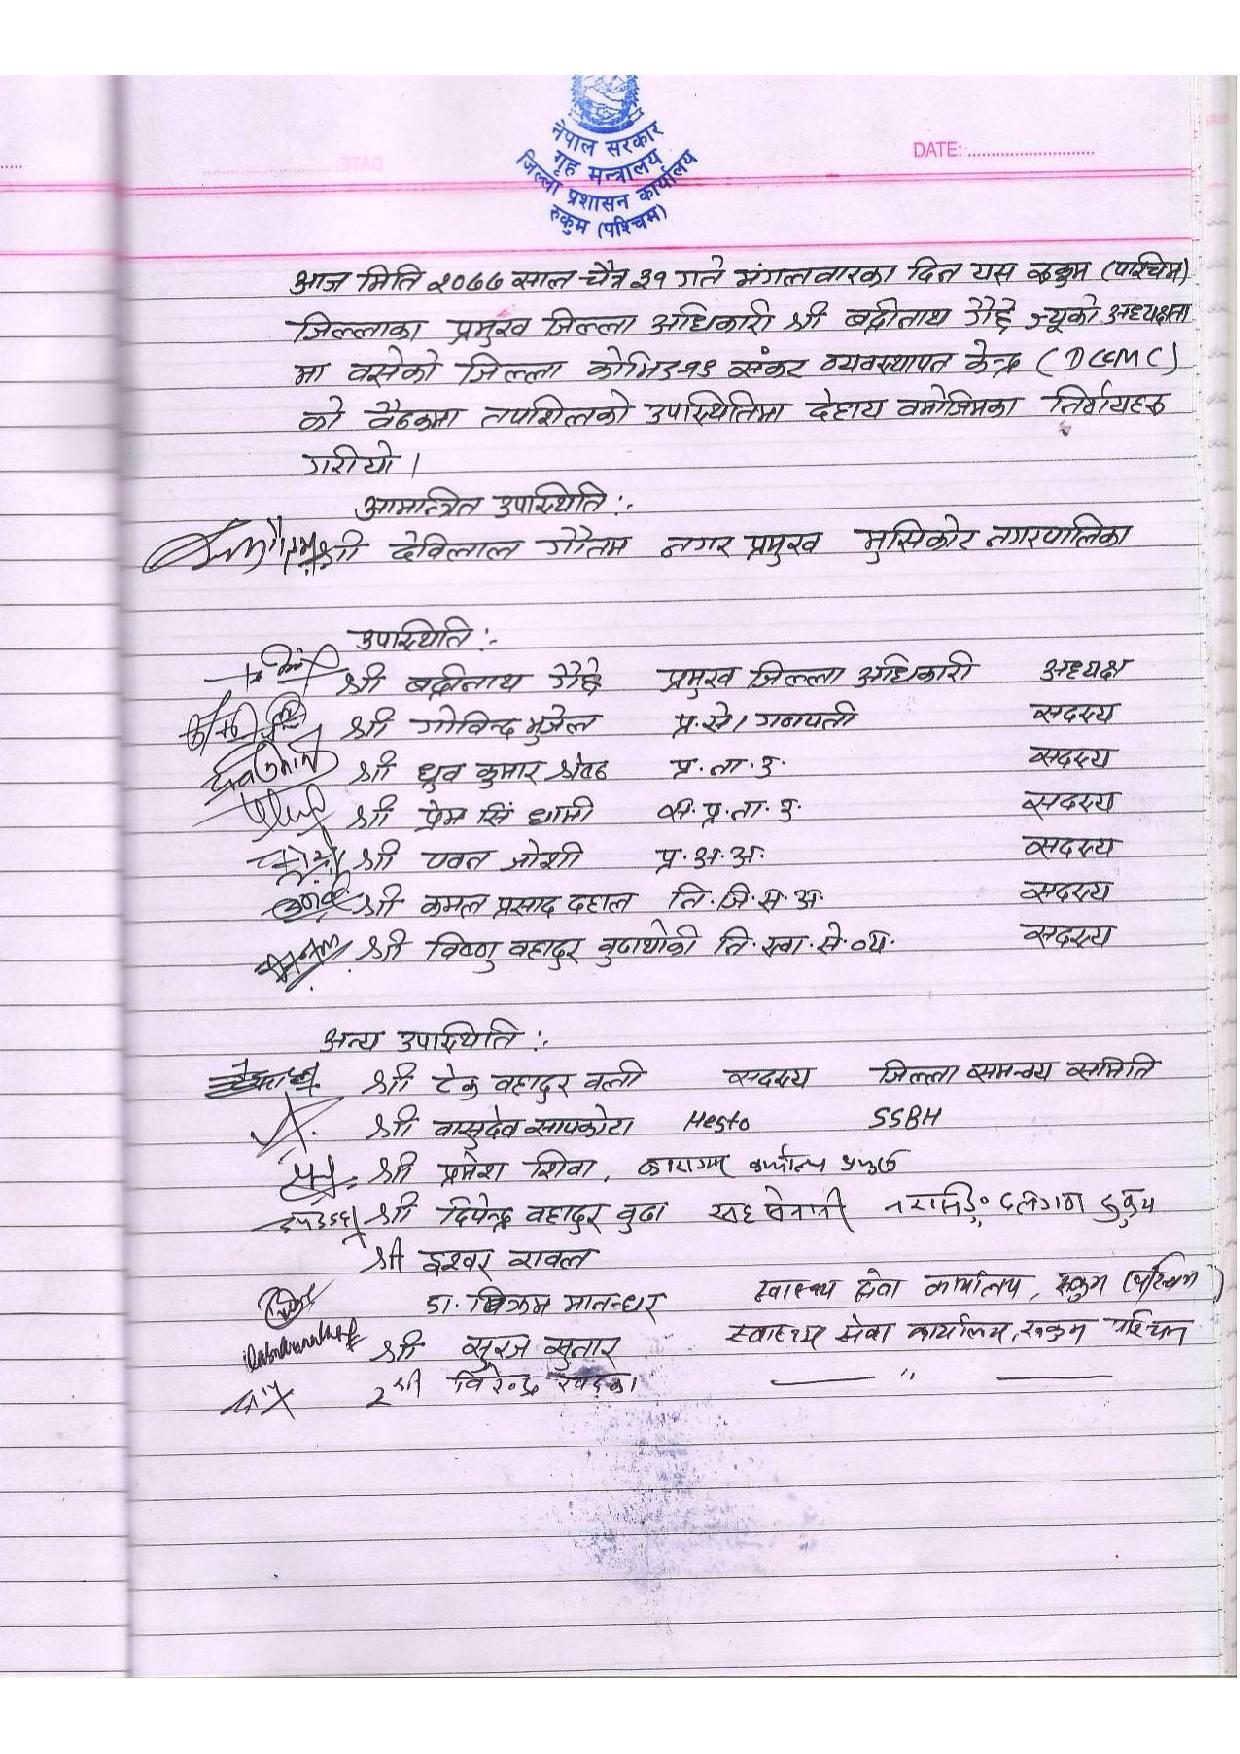 नेपाल सरकार
गृह मन्त्रालय
जिल्ला प्रशासन कार्यालय
रुकुम (पश्चिम)
DATE:
आज मिति २०७७ साल चैत्र ३१ गते मंगलवारका दिन यस रुकुम (पश्चिम)
जिल्लाका प्रमुख जिल्ला अधिकारी श्री बद्रीनाथ गैह्रे ज्यूको अध्यक्षता
मा वसेको जिल्ला कोभिड-१९ संकट व्यवस्थापन केन्द्र (DCCMC)
को वैठकमा तपशिलको उपस्थितिमा देहाय वमोजिमका निर्णयहरु
गरीयो ।
आमान्त्रित उपस्थिति :-
श्री देविलाल गौतम नगर प्रमुख मुसिकोट नगरपालिका
उपस्थिति :-
श्री बद्रीनाथ गैह्रे प्रमुख जिल्ला अधिकारी अध्यक्ष
श्री गोविन्द भुजेल प्र.से। गनपती सदस्य
श्री ध्रुव कुमार श्रेष्ठ प्र.ना.उ. सदस्य
श्री प्रेम सिं धामी स.प्र.ना.उ. सदस्य
श्री पवन जोशी प्र.अ.अ. सदस्य
श्री कमल प्रसाद दहाल नि.जि.स.अ. सदस्य
श्री विष्णु वहादुर वुढाथोकी नि.स्वा.से.व्य. सदस्य
अन्य उपस्थिति :-
श्री टेक वहादुर वली सदस्य जिल्ला समन्वय समिति
श्री वासुदेव सापकोटा Hesto SSBH
श्री प्रमेश शिवा, कारागार कार्यालय प्रमुख
श्री दिपेन्द्र वहादुर वुढा सह सेनानी
श्री इश्वर रावल
डा. बिक्रम मानन्धर स्वास्थ्य सेवा कार्यालय, रुकुम (पश्चिम)
श्री सुरज सुनार स्वास्थ्य सेवा कार्यालय, रुकुम पश्चिम
श्री विरेन्द्र खड्का — " —